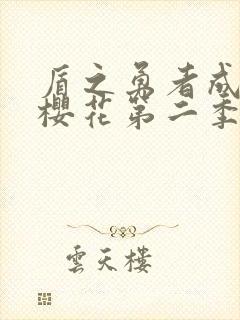 盾之勇者成
櫻花第二季
雲天樓